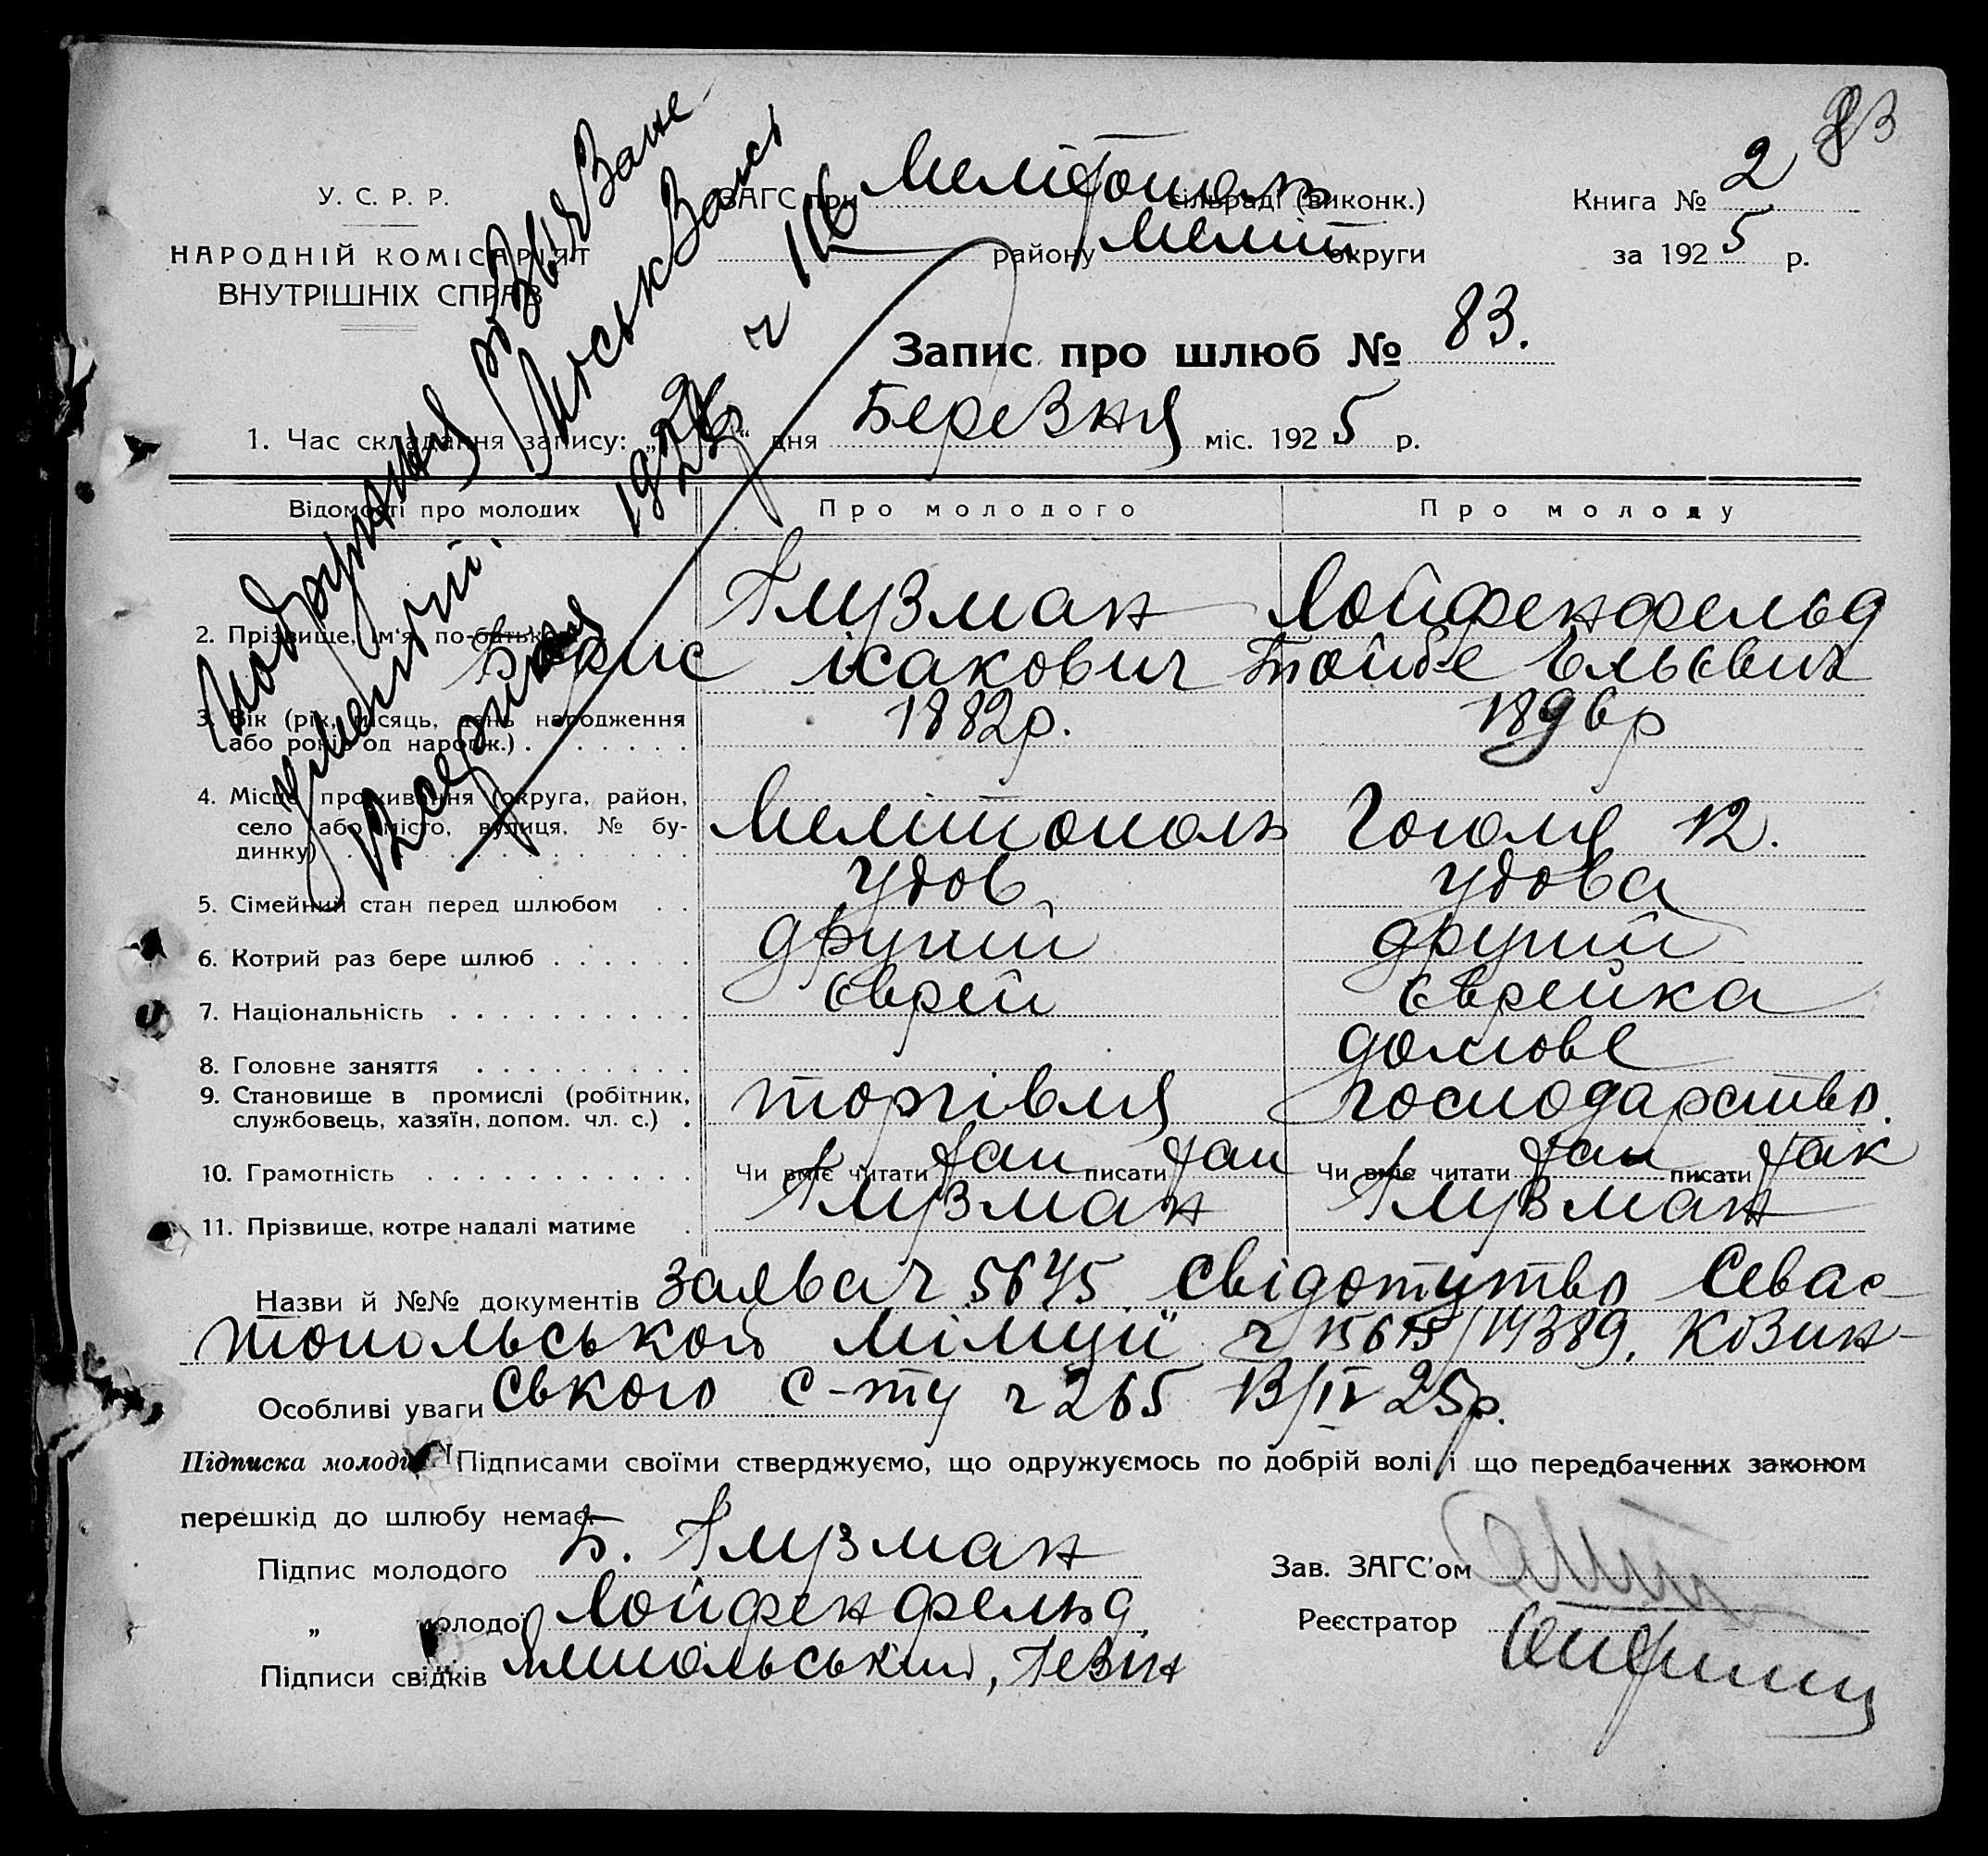 83
У. С. Р. Р.
НАРОДНІЙ КОМІСАРІЯТ
ВНУТРІШНІХ СПРАВ
ЗАГС при Мелітополь сільраді (виконк.)
району Меліт округи
Книга № 2
за 1925 р.
Запис про шлюб № 83.
1. Час складання запису: „ “ дня Березня міс. 1925 р.
Відомості про молодих
Про молодого
Про молоду
2. Прізвище, ім'я, по-батькові
Глузман
Борис Ісакович
Лойфенфельд
Тойбе Ельевих
3. Вік (рік, місяць, день народження
або років од народж.)
1882р.
1896р
4. Місце проживання (округа, район,
село або місто, вулиця, № бу-
динку)
Мелітополь
Гоголя 12.
5. Сімейний стан перед шлюбом
удов
удова
6. Котрий раз бере шлюб
другий
другий
7. Національність
єврей
єврейка
8. Головне заняття
9. Становище в промислі (робітник,
службовець, хазяїн, допом. чл. с.)
торгівля
домове
господарство.
10. Грамотність
Чи вміє читати так писати так
Чи вміє читати так писати так
11. Прізвище, котре надалі матиме
Глузман
Глузман
Назви й №№ документів заява ч 5645. Свідотутво Севас-
топольської міліції ч 15615/14389,
Особливі уваги ського с-ту ч 265 13/IV 25р.
Підписка молодих Підписами своїми стверджуємо, що одружуємось по добрій волі і що передбачених законом
перешкід до шлюбу немає.
Підпис молодого Б. Глузман
„ молодої Лойфенфельд
Підписи свідків Ямпольський, Левін
Зав. ЗАГС'ом
Реєстратор